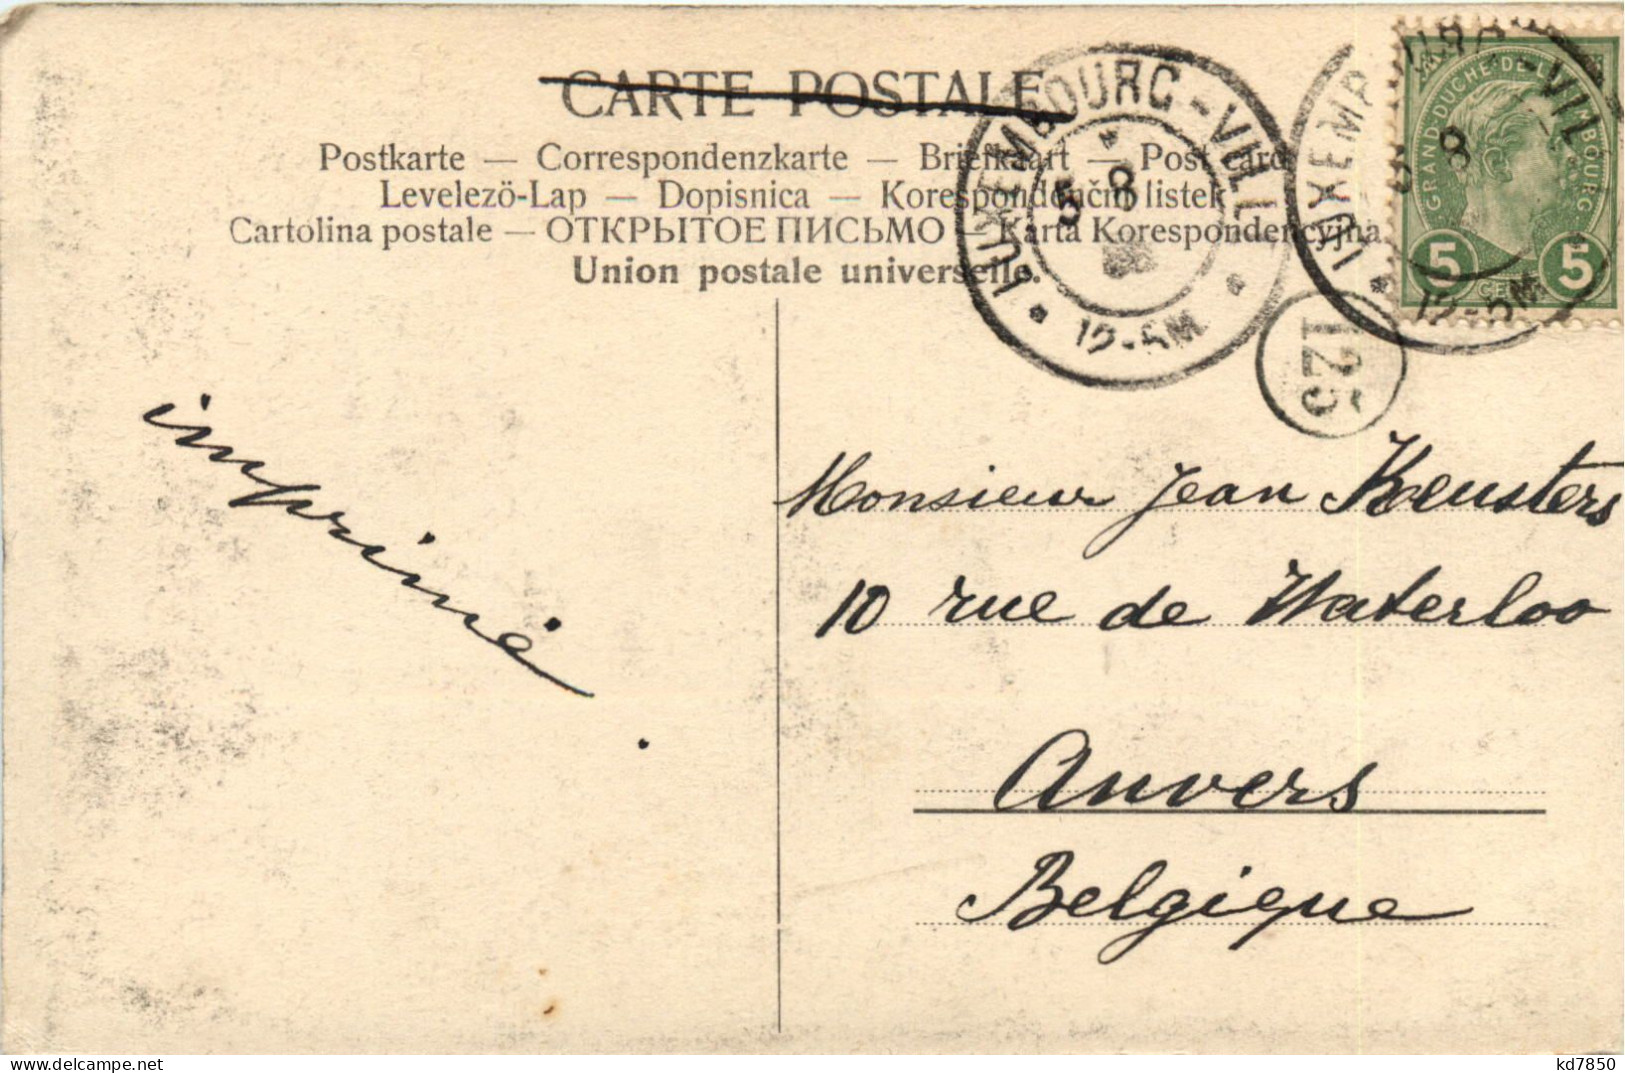 CARTE POSTALE
Postkarte — Correspondenzkarte — Briefkaart — Post card
Levelező-Lap — Dopisnica — Korespondenčni listek
Cartolina postale — ОТКРЫТОЕ ПИСЬМО — Karta Korespondencyjna
Union postale universelle.
LUXEMBOURG-VILLE
5 8
12-5M
LUXEMBOURG-VILLE
5 8
12-5M
GRAND-DUCHÉ DE LUXEMBOURG
5 CES 5
125
imprimé.
Monsieur Jean Keusters
10 rue de Waterloo
Anvers
Belgique
delcampe.net
kd7850